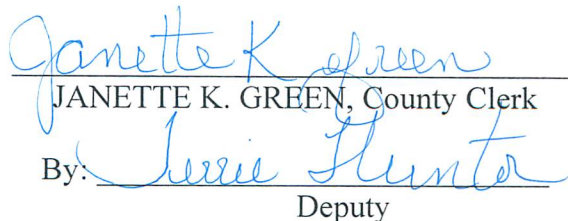 Janette K Green
JANETTE K. GREEN, County Clerk
By: Terrie Hunter
Deputy